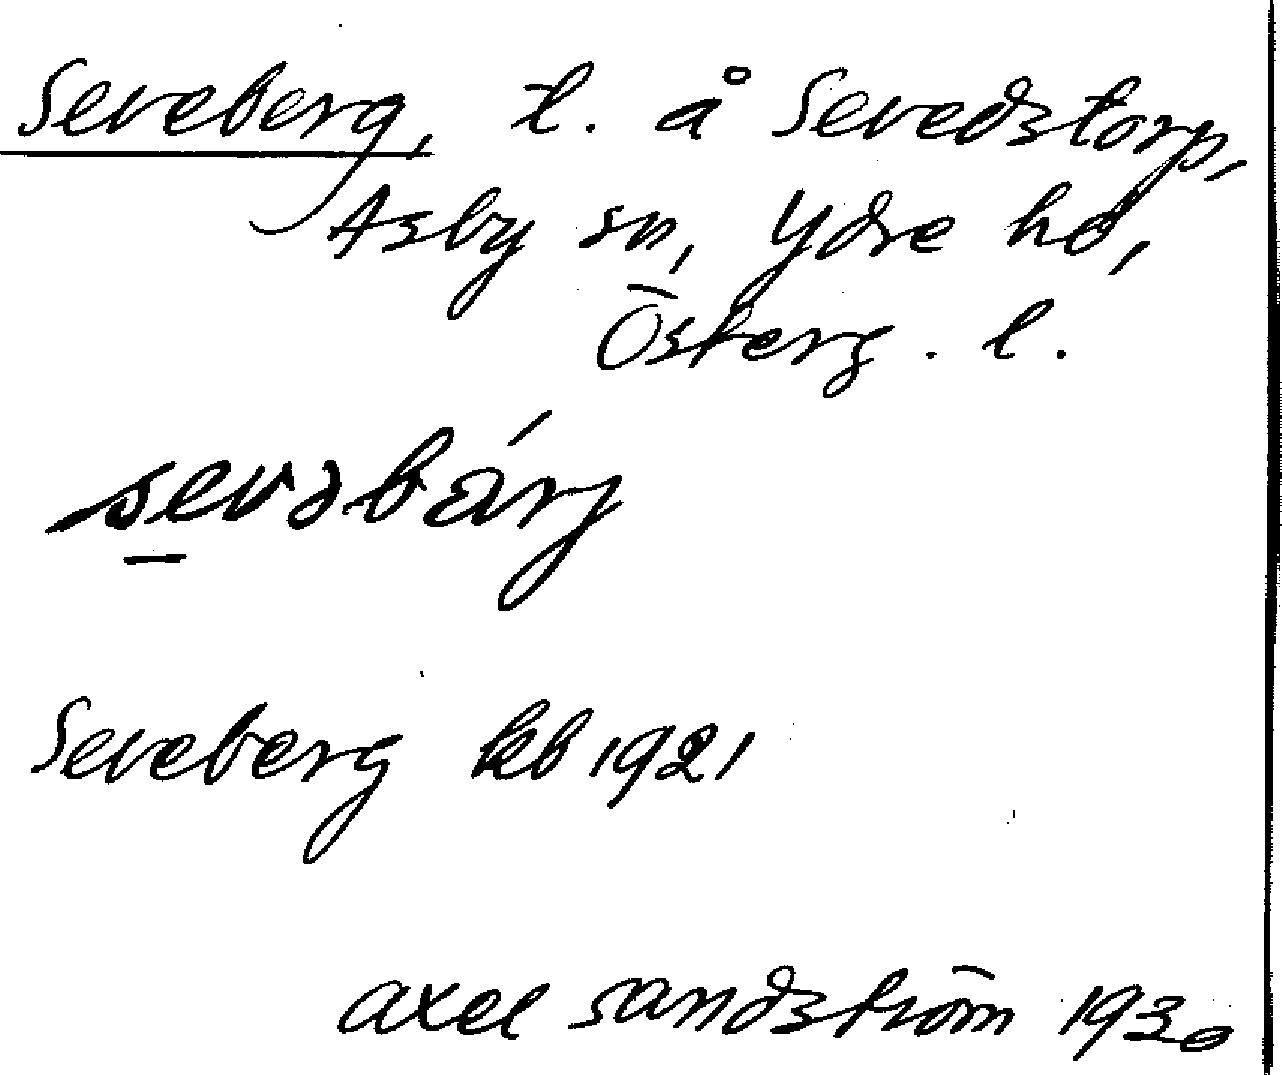 Seveberg, t. å Sevedstorp,
Asby sn, Ydre hd,
Österg. l.
sevəbárj
Seveberg kb 1921
Axel Sandström 1930